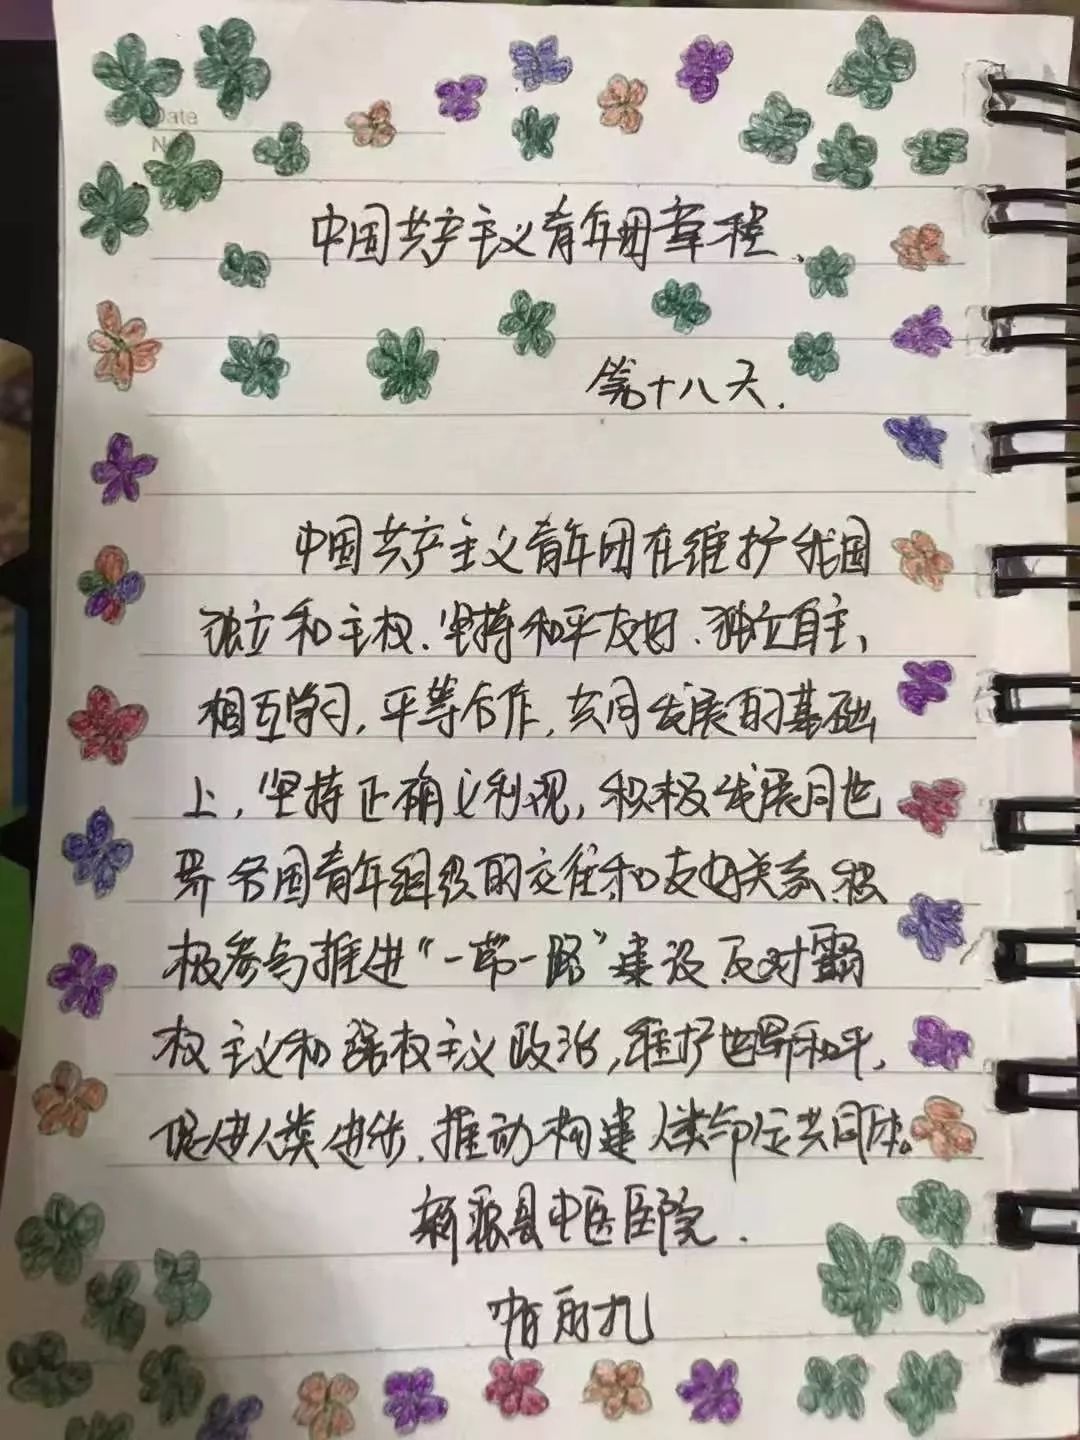 Date
N
中国共产主义青年团章程.
第十八天.
中国共产主义青年团在维护我国
独立和主权.坚持和平友好.独立自主、
相互学习,平等合作,共同发展的基础
上,坚持正确义利观,积极发展同世
界各国青年组织的交往和友好关系.积
极参与推进“一带一路”建设.反对霸
权主义和强权主义政治,维护世界和平,
促进人类进步.推动构建人类命运共同体。
新源县中医医院.